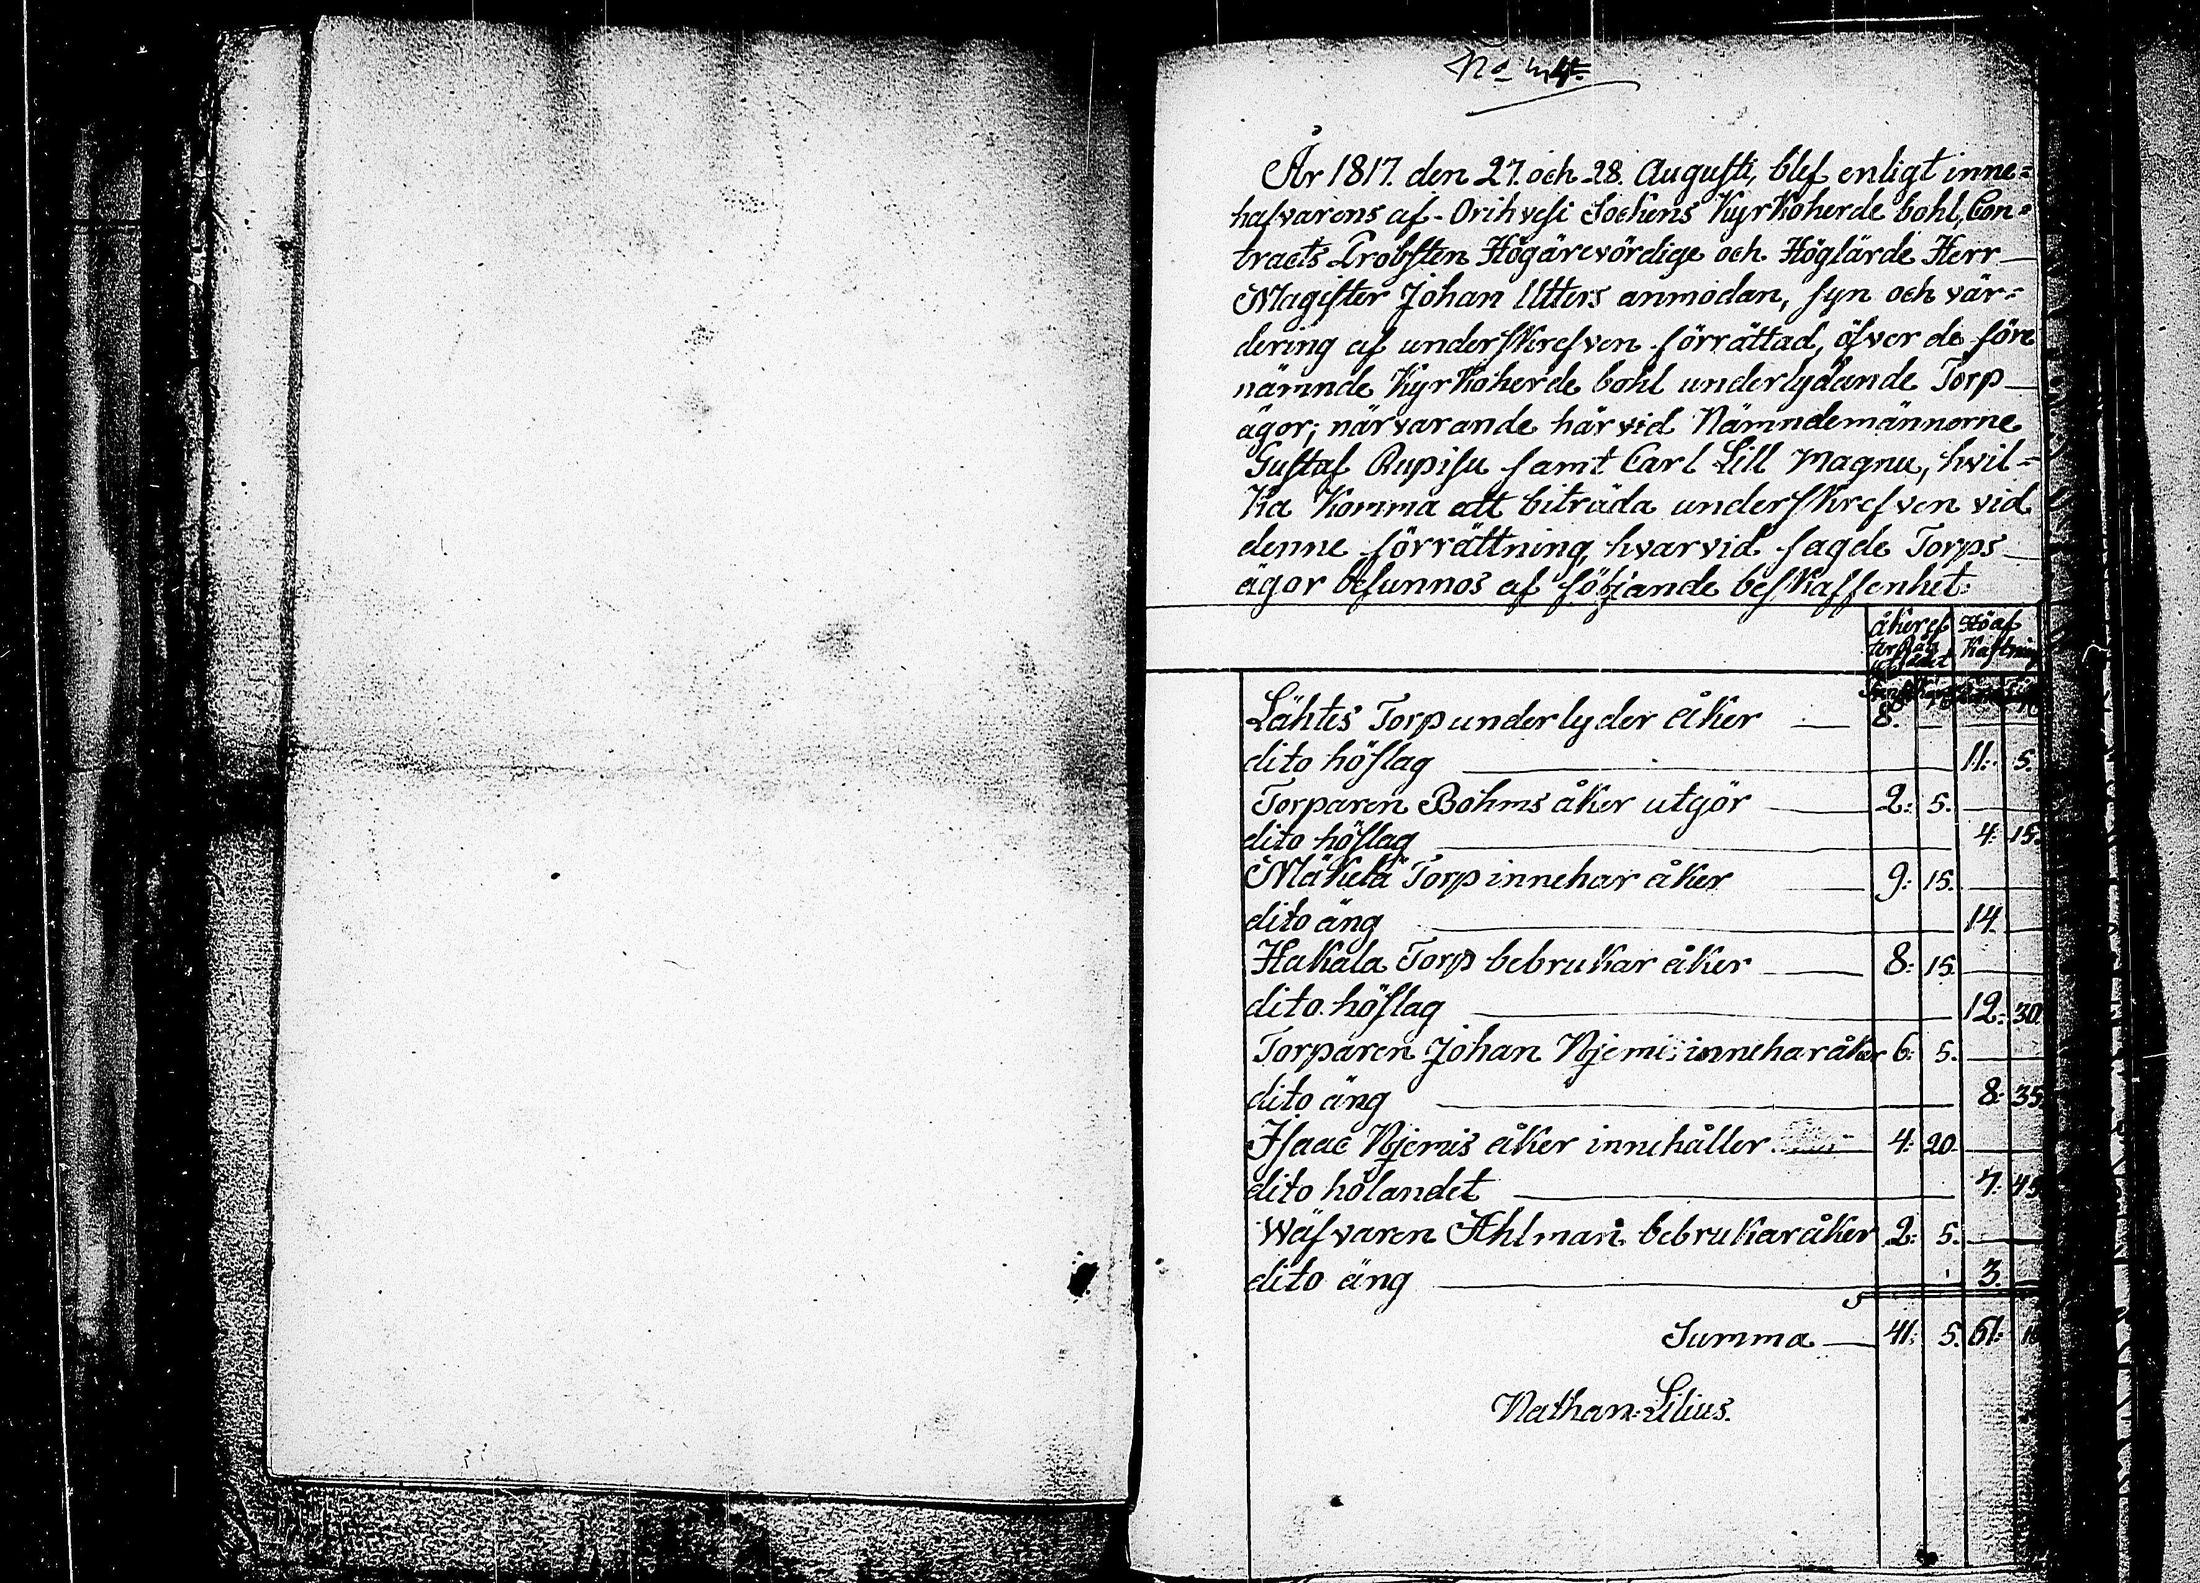 År 1817. den 27. och 28. Augusti, blef enligt inne=
hafvarens af Orihvesi Sockens Kyrkoherde bohl, Con=
tracts Probsten Högärevördige och Höglärde Herr
Magister Johan Utters anmodan, syn och vär=
dering af underskrefven förrättad, öfver de före
nämnde Kyrkoherde bohl underlydande Torp
ägor; närvarande härvid Nämndemännerne
Gustaf Rupisu samt Carl Lill Magnu, hvil=
ka komma att biträda underskrefven vid
denne förrättning, hvarvid sagde Torps
ägor befunnos af följande beskaffenhet:
åker ef Hö af
ter Råg kastning
utsädet
Lähtis Torp underlyder åker — 8. —
dito höslag — 11: 5.
Torparen Bohms åker utgör — 2: 5. —
dito höslag — 4: 15.
Mäkelä Torp innehar åker — 9: 15. —
dito äng — 14. —
Hakala Torp bebrukar åker — 8: 15. —
dito höslag — 12: 30.
Torparen Johan Njemis innehar åker 6: 5. —
dito äng — 8: 35.
Isaac Njemis åker innehåller — 4: 20. —
dito hölandet — 7: 45
Wäfvaren Ahlman bebrukar åker 2: 5. —
dito äng — 3. —
Summa — 41: 5. 61:
Nathan Lilius.